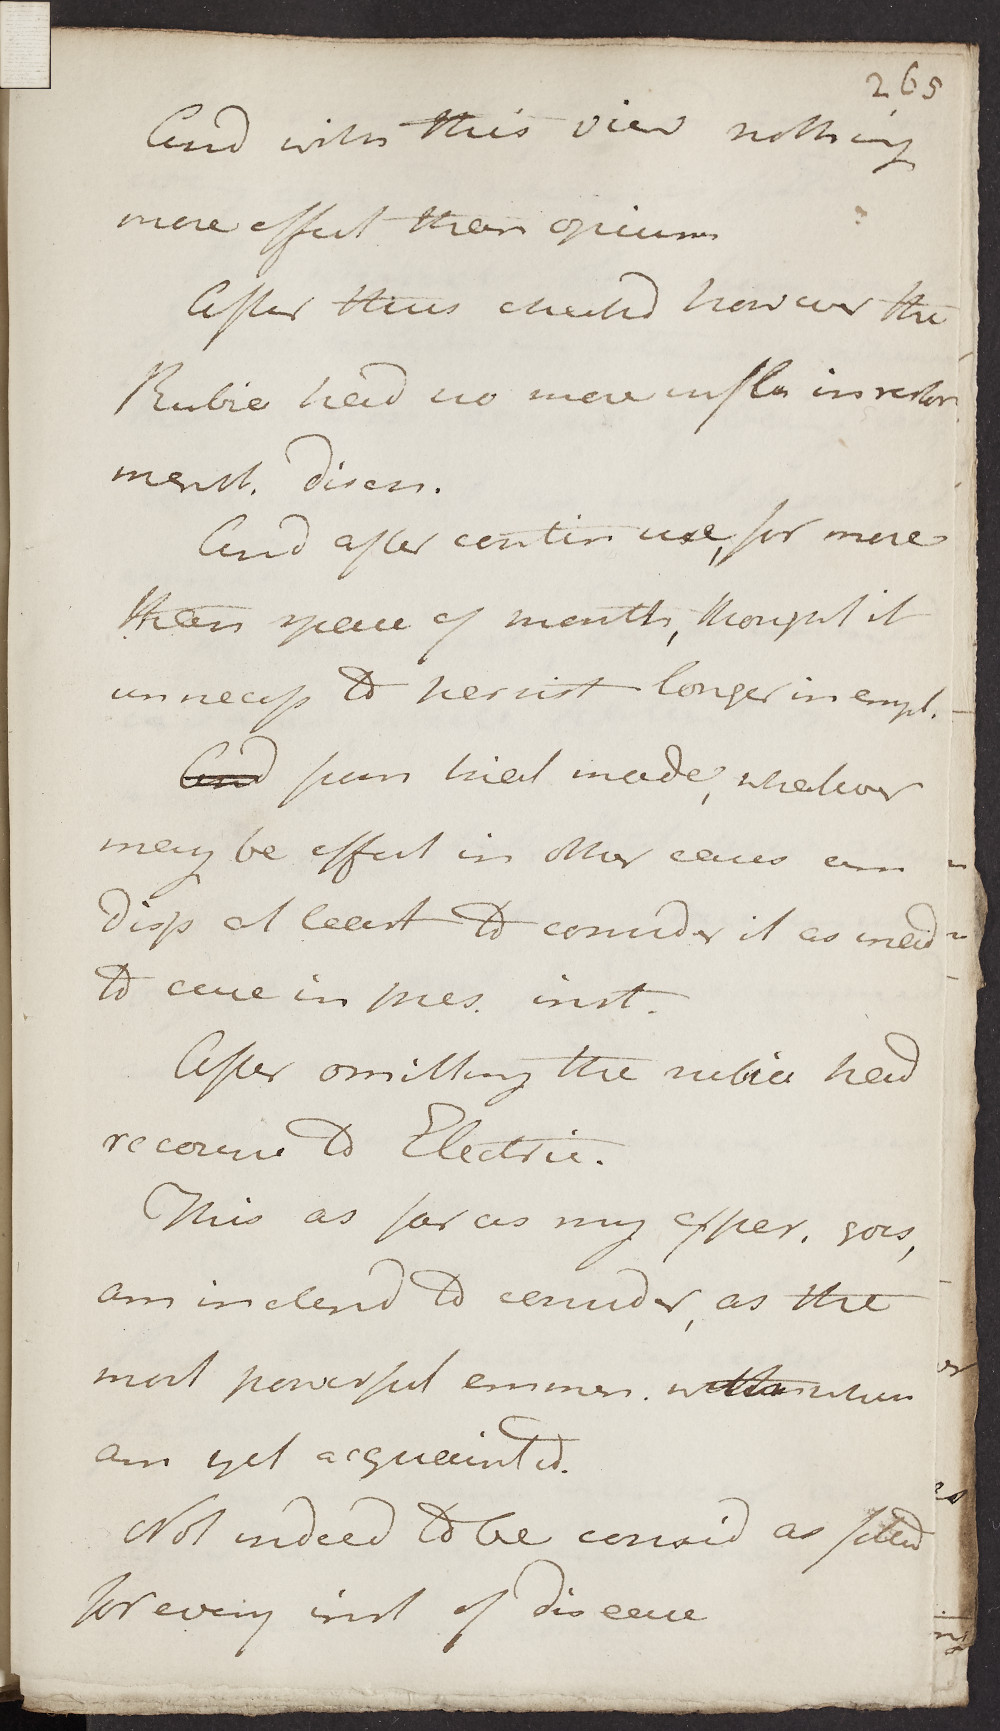 265
And with this view nothing
more effect than opium
After thus checked however the
Rubia had no more infln in restor
menst. discn.
And after contin use, for more
than space of month, thought it
unnecess to persist longer in empl.
And from trial made, whatever
may be effect in other cases am
disp at least to consider it as inad
to cure in pres. inst.
After omitting the rubia had
recourse to Electric.
This as far as my exper. goes,
am inclend to consider, as the
most powerful emmen. with when
am yet acquainted.
Not indeed to be consid as fitted
for every inst of disease